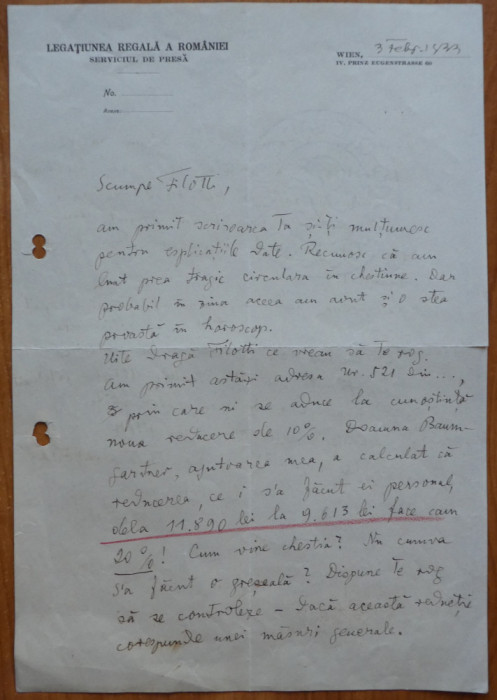 LEGAȚIUNEA REGALĂ A ROMÂNIEI
SERVICIUL DE PRESĂ
WIEN, 3 Febr. 1933
IV. PRINZ EUGENSTRASSE 60
No.
Scumpe Filotti,
am primit scrisoarea Ta și-ți mulțumesc
pentru esplicațiile date. Recunosc că am
luat prea tragic circulara în chestiune. Dar
probabil în ziua aceea am avut și o stea
proastă în horoscop.
Uite dragă Filotti ce vreau să Te rog.
Am primit astăzi adresa Nr. 521 din...,
prin care ni se aduce la cunoștință
noua reducere de 10%. Doamna Baum-
gartner, ajutoarea mea, a calculat că
reducerea, ce i s'a făcut ei personal,
dela 11.890 lei la 9.613 lei face cam
20%! Cum vine chestia? Nu cumva
s'a făcut o greșeală? Dispune Te rog
să se controleze – dacă această reducție
corespunde unei măsuri generale.